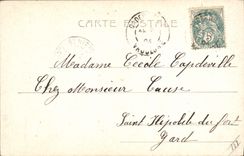 CARTE POSTALE
5
Madame Cécile Capdeville
Chez Monsieur Causse
Saint Hipolite du fort
Gard